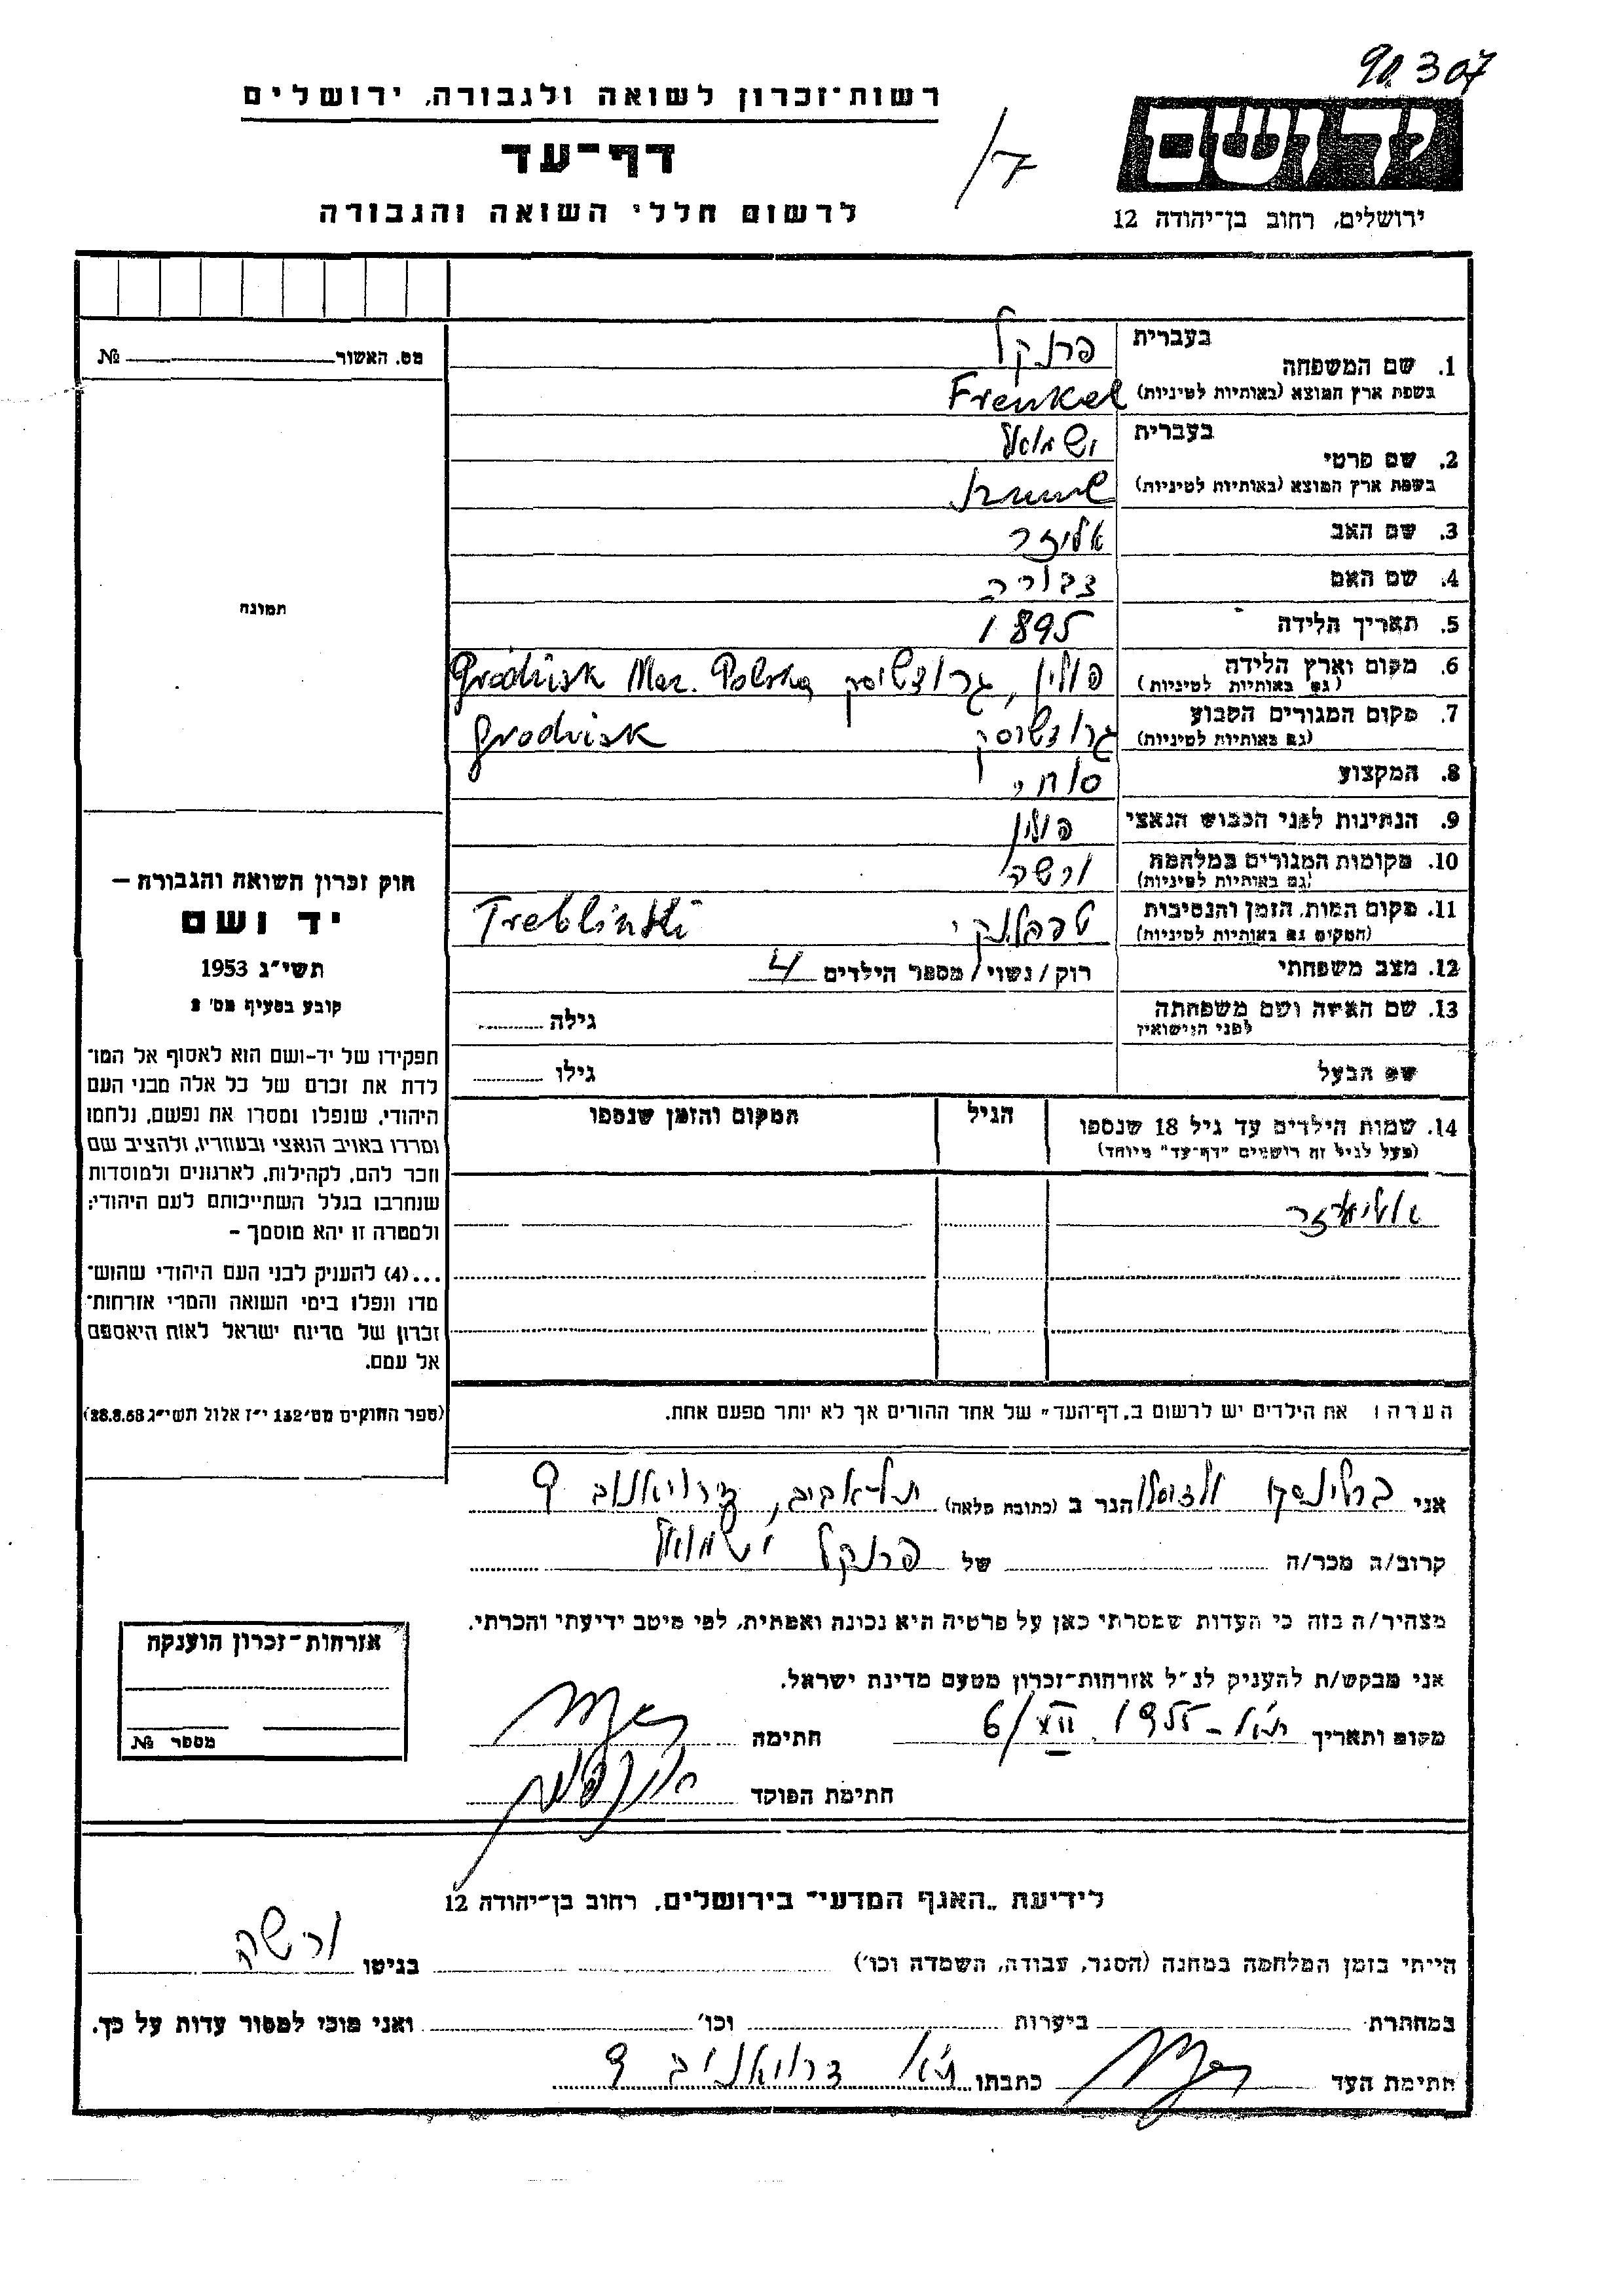 90307
רשות־זכרון לשואה ולגבורה, ירושלים
דף־עד
לרשום חללי השואה והגבורה
יד ושם
ירושלים, רחוב בן־יהודה 12
מס. האשור № 
תמונה
חוק זכרון השואה והגבורה –
יד ושם
תשי״ג 1953
קובע בסעיף מס׳ 2
תפקידו של יד-ושם הוא לאסוף אל המו־
לדת את זכרם של כל אלה מבני העם
היהודי, שנפלו ומסרו את נפשם, נלחמו
ומרדו באויב הנאצי ובעוזריו, ולהציב שם
וזכר להם, לקהילות, לארגונים ולמוסדות
שנחרבו בגלל השתייכותם לעם היהודי;
ולמטרה זו יהא מוסמך –
...(4) להעניק לבני העם היהודי שהוש־
מדו ונפלו בימי השואה והמרי אזרחות־
זכרון של מדינת ישראל לאות היאספם
אל עמם.
(ספר החוקים מס׳ 132 י״ז אלול תשי״ג 28.8.53)
בעברית פרנקל
1. שם המשפחה
בשפת ארץ המוצא (באותיות לטיניות) Frenkel
בעברית ישמואל
2. שם פרטי
בשפת ארץ המוצא (באותיות לטיניות)
3. שם האב אליעזר
4. שם האם דבורה
5. תאריך הלידה 1895
6. מקום וארץ הלידה פולין, Polska
(גם באותיות לטיניות)
7. מקום המגורים הקבוע Grodzisk
(גם באותיות לטיניות)
8. המקצוע סוחר
9. הנתינות לפני הכבוש הנאצי פולין
10. מקומות המגורים במלחמה ורשה
(גם באותיות לטיניות)
11. מקום המות, הזמן והנסיבות טרבלנקי Treblinki
(המקום גם באותיות לטיניות)
12. מצב משפחתי רוק/נשוי/מספר הילדים 4
13. שם האשה ושם משפחתה גילה
לפני הנישואין
שם הבעל גילו
14. שמות הילדים עד גיל 18 שנספו הגיל המקום והזמן שנספו
(מעל לגיל זה רושמים ״דף־עד״ מיוחד)
אליעזר
הערה: את הילדים יש לרשום ב„דף־העד״ של אחד ההורים אך לא יותר מפעם אחת.
אני ברלינסקי הגר ב (כתובת מלאה) תל-אביב, דרויאנוב 9
קרוב/ה מכר/ה של פרנקל ישמואל
מצהיר/ה בזה כי העדות שמסרתי כאן על פרטיה היא נכונה ואמתית, לפי מיטב ידיעתי והכרתי.
אני מבקש/ת להעניק לנ״ל אזרחות־זכרון מטעם מדינת ישראל.
מקום ותאריך ת״א - 1955 6/XII חתימה
חתימת הפוקד
אזרחות־זכרון הוענקה
מספר №
לידיעת „האגף המדעי״ בירושלים, רחוב בן־יהודה 12
הייתי בזמן המלחמה במחנה (הסגר, עבודה, השמדה וכו׳) בגיטו ורשה
במחתרת ביערות וכו׳ ואני מוכן למסור עדות על כך.
חתימת העד כתבתו ת״א דרויאנוב 9